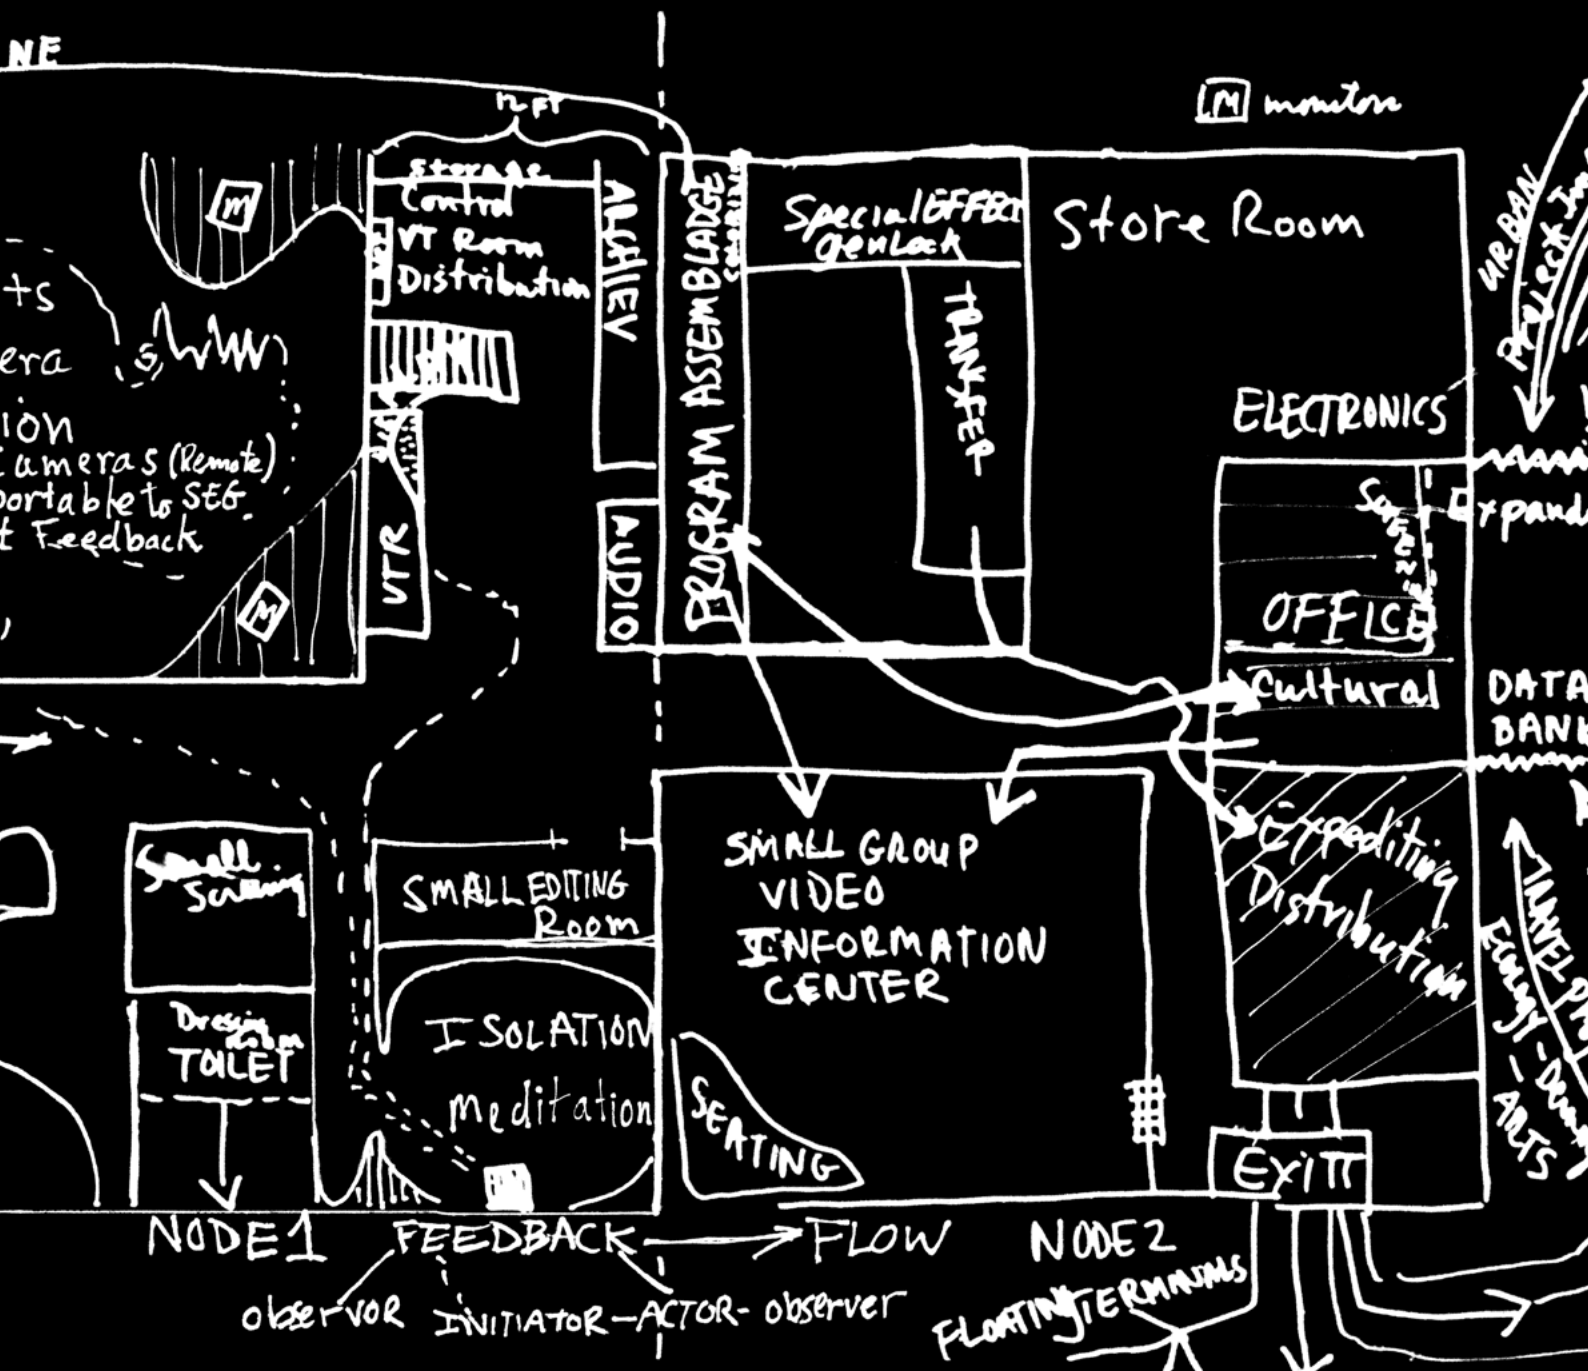 NE
12 FT
M monitors
storage
Control
VT Room
Distribution
M
ARCHIEV
PROGRAM ASSEMBLADGE
Special EFFECT
genlock
Store Room
TRANSFER
URBAN
ts
era
ion
Cameras (Remote)
portable to SEG.
t Feedback
S
M
VTR
AUDIO
ELECTRONICS
Expand
OFFICE
Cultural
DATA
BANK
Small
SMALL EDITING
Room
SMALL GROUP
VIDEO
INFORMATION
CENTER
Expediting
Distribution
Dressin
Room
TOILET
ISOLATION
meditation
SEATING
TRAVEL
Ecology -
ARTS
EXITT
NODE 1
FEEDBACK
FLOW
NODE 2
observor INITIATOR - ACTOR - observer
FLOATING TERMINALS